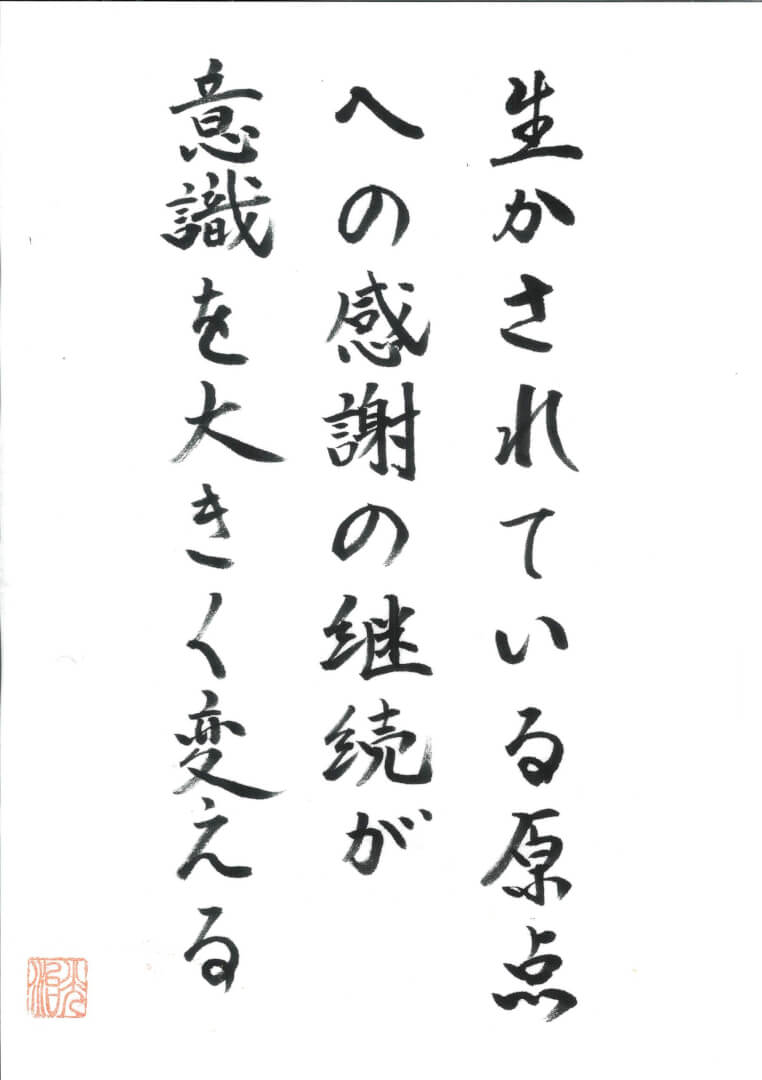 生かされている原点
への感謝の継続が
意識を大きく変える